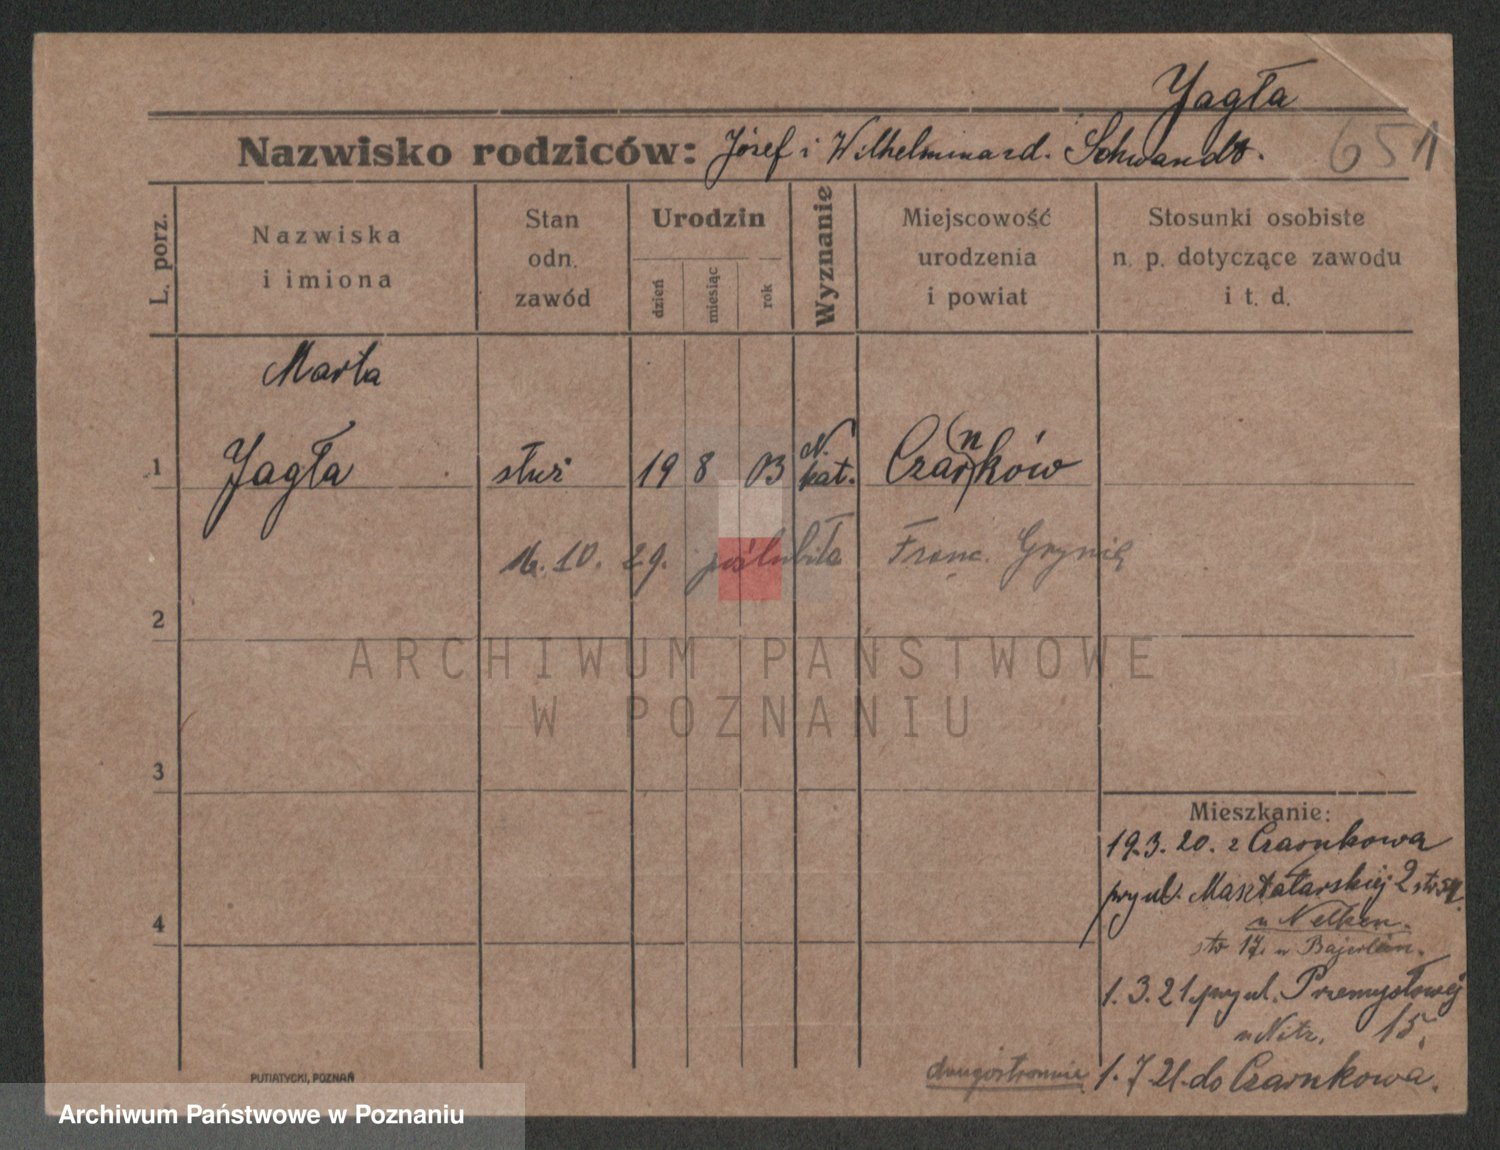 Yagła
Nazwisko rodziców: Józef i Wilhelmina zd. Schwandt. 651
L. porz.
Nazwiska
i imiona
Stan
odn.
zawód
Urodzin
dzień
miesiąc
rok
Wyznanie
Miejscowość
urodzenia
i powiat
Stosunki osobiste
n. p. dotyczące zawodu
i t. d.
Marta
1 Yagła służ 19 8 03 kat. Czarnków
16. 10. 29. poślubiła Franc.
2
ARCHIWUM PAŃSTWOWE
W POZNANIU
3
Mieszkanie:
19.3.20. z Czarnkowa
przy ul. Masztalarskiej 2
u Nelken.
4
17. u
1.3.21. przy ul. Przemysłowej
15.
drugostronnie 1.7.21. do Czarnkowa.
PUTIATYCKI, POZNAŃ
Archiwum Państwowe w Poznaniu